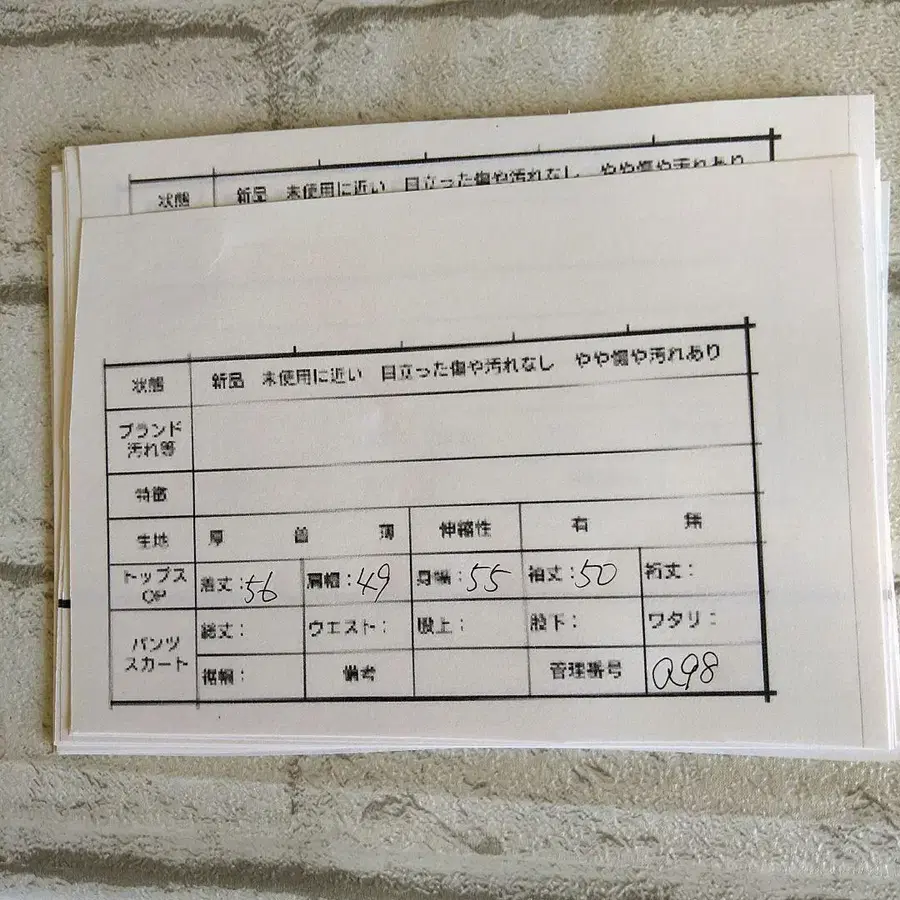 状態 新品 未使用に近い 目立った傷や汚れなし やや傷や汚れあり
状態 新品 未使用に近い 目立った傷や汚れなし やや傷や汚れあり
ブランド
汚れ等
特徴
生地 厚 普 薄 伸縮性 有 無
トップス
OP
着丈:56 肩幅:49 身幅:55 袖丈:50 裄丈:
パンツ
スカート
総丈: ウエスト: 股上: 股下: ワタリ:
裾幅: 備考 管理番号 Q98